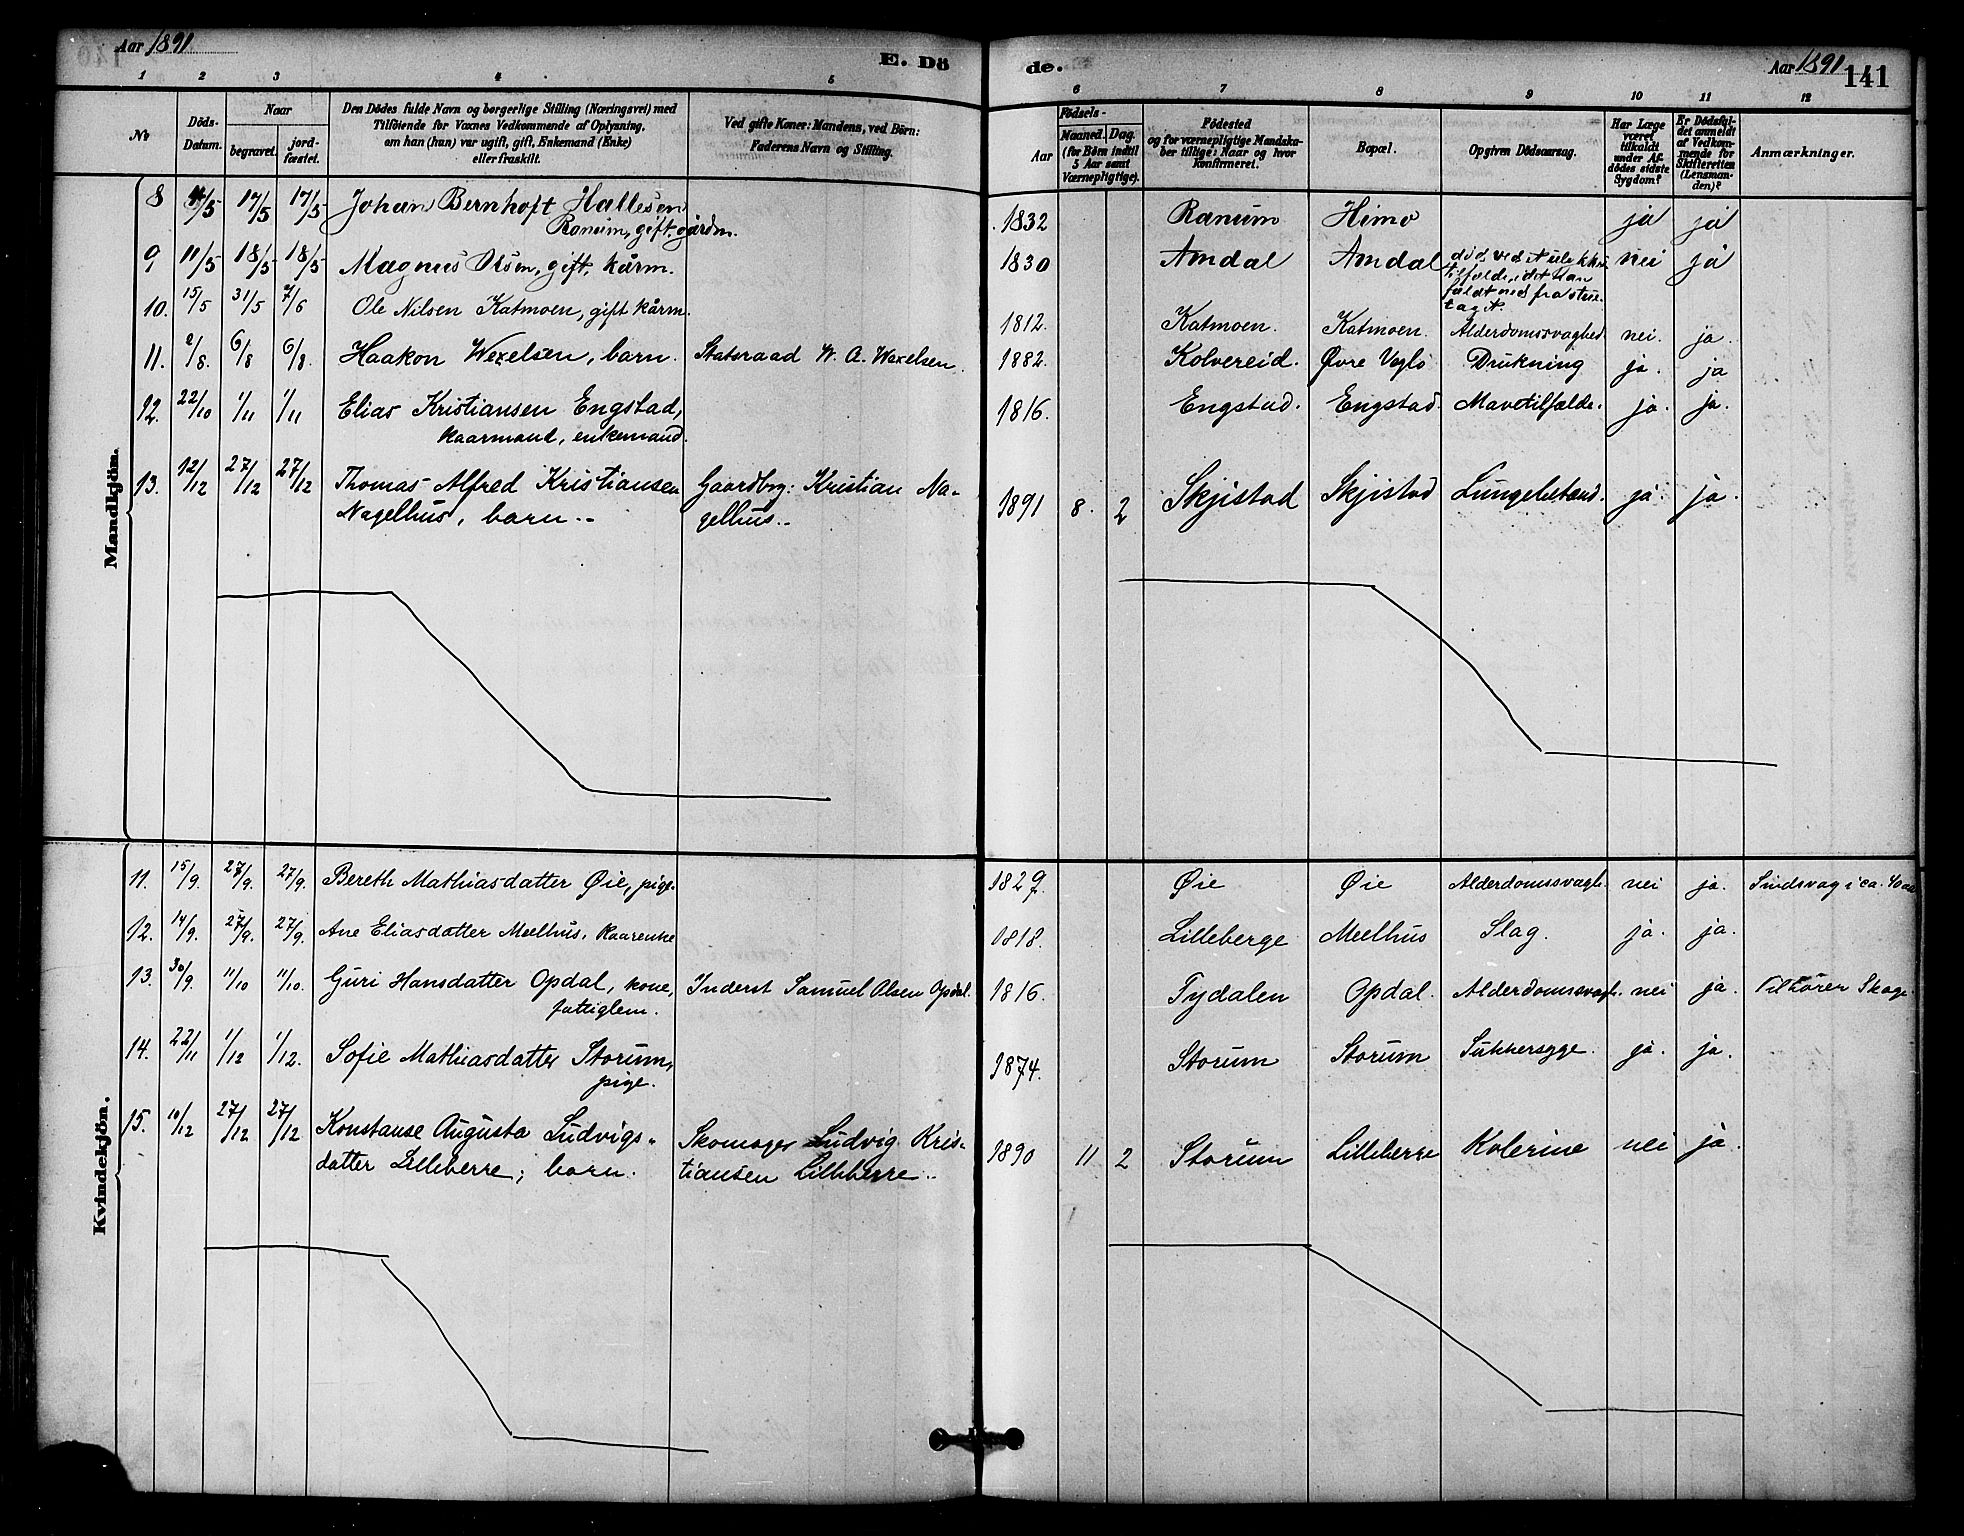 Aar 1891
E. Dö
de.
Aar 1891
141
1 2 3 4 5 6 7 8 9 10 11 12
No
Döds-
Datum.
Naar
begravet.
jord-
fæstet.
Den Dödes fulde Navn og borgerlige Stilling (Næringsvei) med
Tilföiende for Voxnes Vedkommende af Oplysning,
om han (hun) var ugift, gift, Enkemand (Enke)
eller fraskilt.
Ved gifte Koner: Mandens, ved Börn:
Faderens Navn og Stilling.
Födsels-
Aar
Maaned. Dag.
(for Börn indtil
5 Aar samt
Værnepligtige).
Födested
og for værnepligtige Mandska-
ber tillige: Naar og hvor
konfirmeret.
Bopæl.
Opgiven Dödsaarsag.
Har Læge
været
tilkaldt
under Af-
dödes sidste
Sygdom?
Er Dödsfal-
det anmeldt
af Vedkom-
mende for
Skifteretten
(Lensman-
den)?
Anmærkninger.
Mandkjön.
8 /5 17/5 17/5 Johan Bernhoft Hallesen 1832 Ranum Himo ja ja
Ranum, gift, gårdm.
9 11/5 18/5 18/5 Magnus Olsen, gift, kårm. 1830 Amdal Amdal död ved et ulykkes- nei ja
tilfælde, idet han
faldt ned fra stue-
taget.
10. 15/5 31/5 7/6 Ole Nilsen Katmoen, gift kårm. 1812. Katmoen. Katmoen. Alderdomssvaghed nei. ja.
11. 2/8. 6/8 6/8. Haakon Wexelsen, barn. Statsraad W. A. Wexelsen. 1882. Kolvereid. Øvre Veglo Drukning ja. ja
12. 22/10 1/11 1/11 Elias Kristiansen Engstad, 1816. Engstad. Engstad. Mavetilfælde. ja. ja.
kaarmand, enkemand.
13. 12/12 27/12 27/12 Thomas Alfred Kristiansen Gaardbrg: Kristian Na- 1891 8. 2 Skjistad Skjistad Lungebetænd. ja. ja.
Nagelhus, barn.- gelhus.-
Kvindekjön.
11. 15/9. 27/9. 27/9. Bereth Mathiasdatter Øie, pige. 1829. Øie Øie Alderdomssvagh. nei ja. Sindsvag i ca. 40 aar
12. 14/9. 27/9. 27/9. Ane Eliasdatter Meelhus, kaarenke 1818. Lilleberge Meelhus Slag. ja. ja.
13. 30/9. 11/10 11/10. Guri Hansdatter Opdal, kone, Inderst Samuel Olsen Opdal. 1816. Tydalen Opdal. Alderdomssvagh. nei ja. Tilhører Skage
fattiglem.
14. 22/11 1/12 1/12. Sofie Mathiasdatter Storum, 1874. Storum Storum Sukkersyge. ja. ja.
pige.
15. 10/12 27/12 27/12 Konstanse Augusta Ludvigs- Skomager Ludvig Kris- 1890 11 2 Storum Lilleberre Kolerine nei ja.
datter Lilleberre, barn. tiansen Lilleberre..